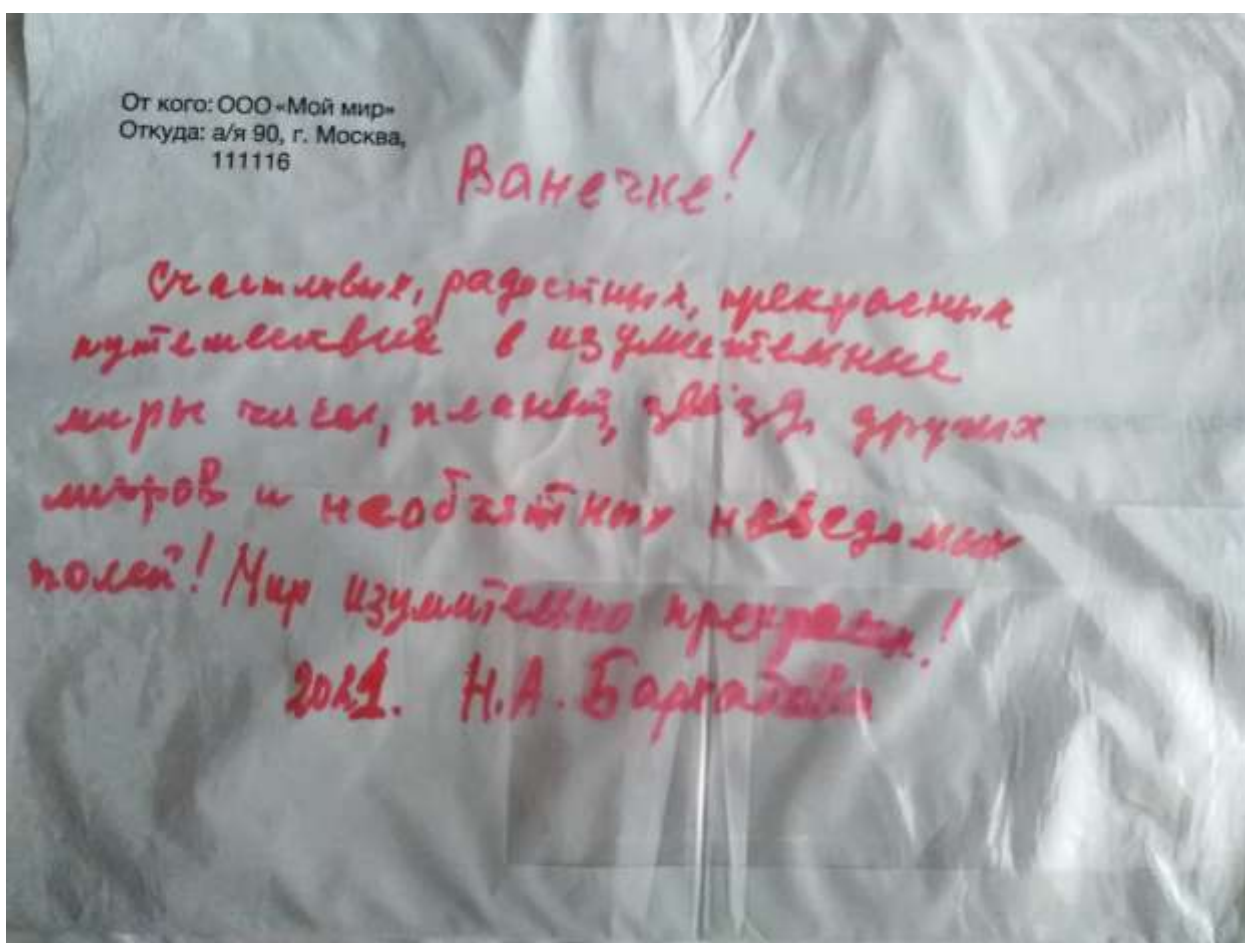 От кого: ООО «Мой мир»
Откуда: а/я 90, г. Москва,
111116
Ванечке!
Счастливых, радостных, прекрасных
путешествий в изумительные
миры чисел, планет, звёзд, других
миров и необъятных неведомых
полей! Мир изумительно прекрасен!
2021. Н.А.